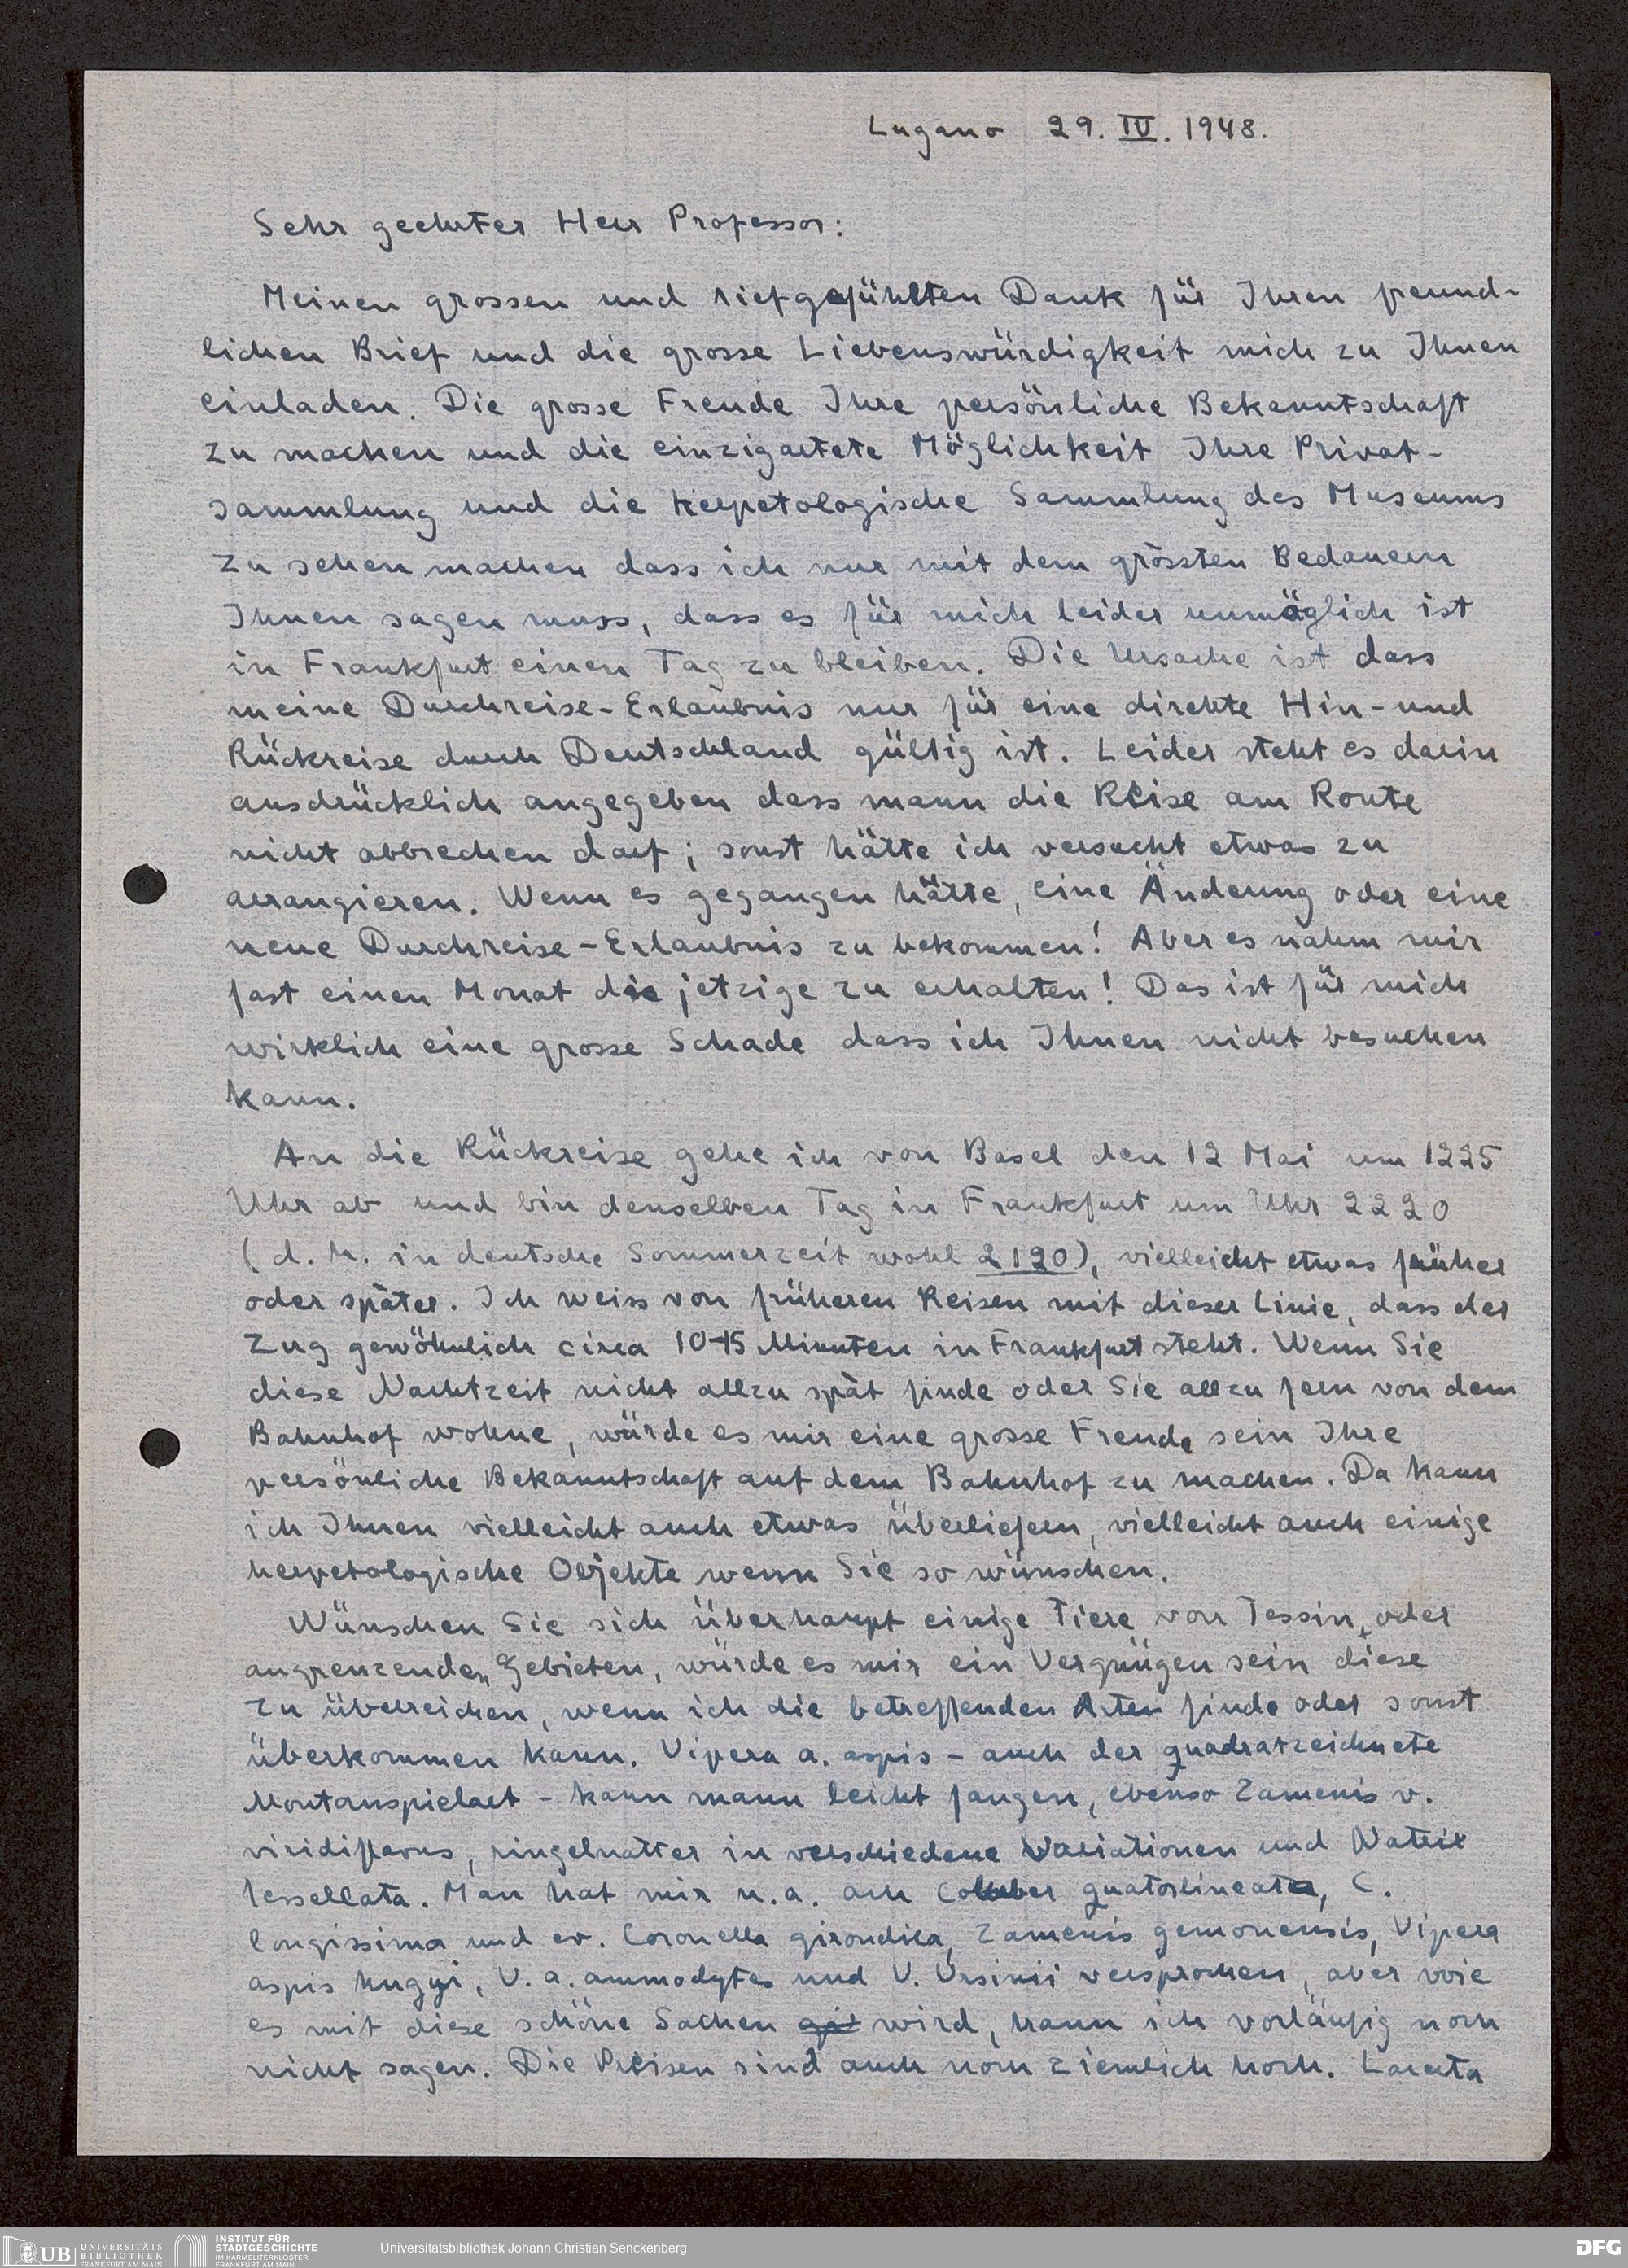 Lugano 29. IV. 1948.
Sehr geehrter Herr Professor:
Meinen grossen und tiefgefühlten Dank für Ihren freund-
lichen Brief und die grosse Liebenswürdigkeit mich zu Ihnen
einladen. Die grosse Freude Ihre persönliche Bekanntschaft
zu machen und die einzigartete Möglichkeit Ihre Privat-
sammlung und die herpetologische Sammlung des Museums
zu sehen machen dass ich nur mit dem grössten Bedauern
Ihnen sagen muss, dass es für mich leider unmöglich ist
in Frankfurt einen Tag zu bleiben. Die Ursache ist dass
meine Durchreise-Erlaubnis nur für eine direkte Hin-und
Rückreise durch Deutschland gültig ist. Leider steht es darin
ausdrücklich angegeben dass mann die Reise am Route
nicht abbrechen darf; sonst hätte ich versucht etwas zu
arrangieren. Wenn es gegangen hätte, eine Änderung oder eine
neue Durchreise-Erlaubnis zu bekommen! Aber es nahm mir
fast einen Monat die jetzige zu erhalten! Das ist für mich
wirklich eine grosse Schade dass ich Ihnen nicht besuchen
kann.
An die Rückreise gehe ich von Basel den 12 Mai um 1225
Uhr ab und bin denselben Tag in Frankfurt um Uhr 2220
(d. h. in deutsche Sommerzeit wohl 2120), vielleicht etwas früher
oder später. Ich weiss von früheren Reisen mit dieser Linie, dass der
Zug gewöhnlich circa 10-15 Minuten in Frankfurt steht. Wenn Sie
diese Nachtzeit nicht allzu spät finde oder Sie allzu fern von dem
Bahnhof wohne, würde es mir eine grosse Freude sein Ihre
persönliche Bekanntschaft auf dem Bahnhof zu machen. Da kann
ich Ihnen vielleicht auch etwas überliefern, vielleicht auch einige
herpetologische Objekte wenn Sie so wünschen.
Wünschen Sie sich überhaupt einige Tiere von Tessin, oder
angrenzenden Gebieten, würde es mir ein Vergnügen sein diese
zu überreichen, wenn ich die betreffenden Arten finde oder sonst
überkommen kann. Vipera a. aspis - auch der quadratzeichnete
Montanspielart - kann mann leicht fangen, ebenso Zamenis v.
viridiflavus, ringelnatter in verschiedene Variationen und Natrix
tessellata. Man hat mir u. a. och Coluber quatorlineata, C.
longissima und ev. Coronella girondica, Zamenis gemonensis, Vipera
aspis hugyi, V. a. ammodytes und V. Ursinii versprochen, aber wie
es mit diese schöne Sachen wird, kann ich vorläufig noch
nicht sagen. Die Preisen sind auch noch ziemlich hoch. Lacerta
UB UNIVERSITÄTS BIBLIOTHEK FRANKFURT AM MAIN
INSTITUT FÜR STADTGESCHICHTE IM KARMELITERKLOSTER FRANKFURT AM MAIN
Universitätsbibliothek Johann Christian Senckenberg
DFG